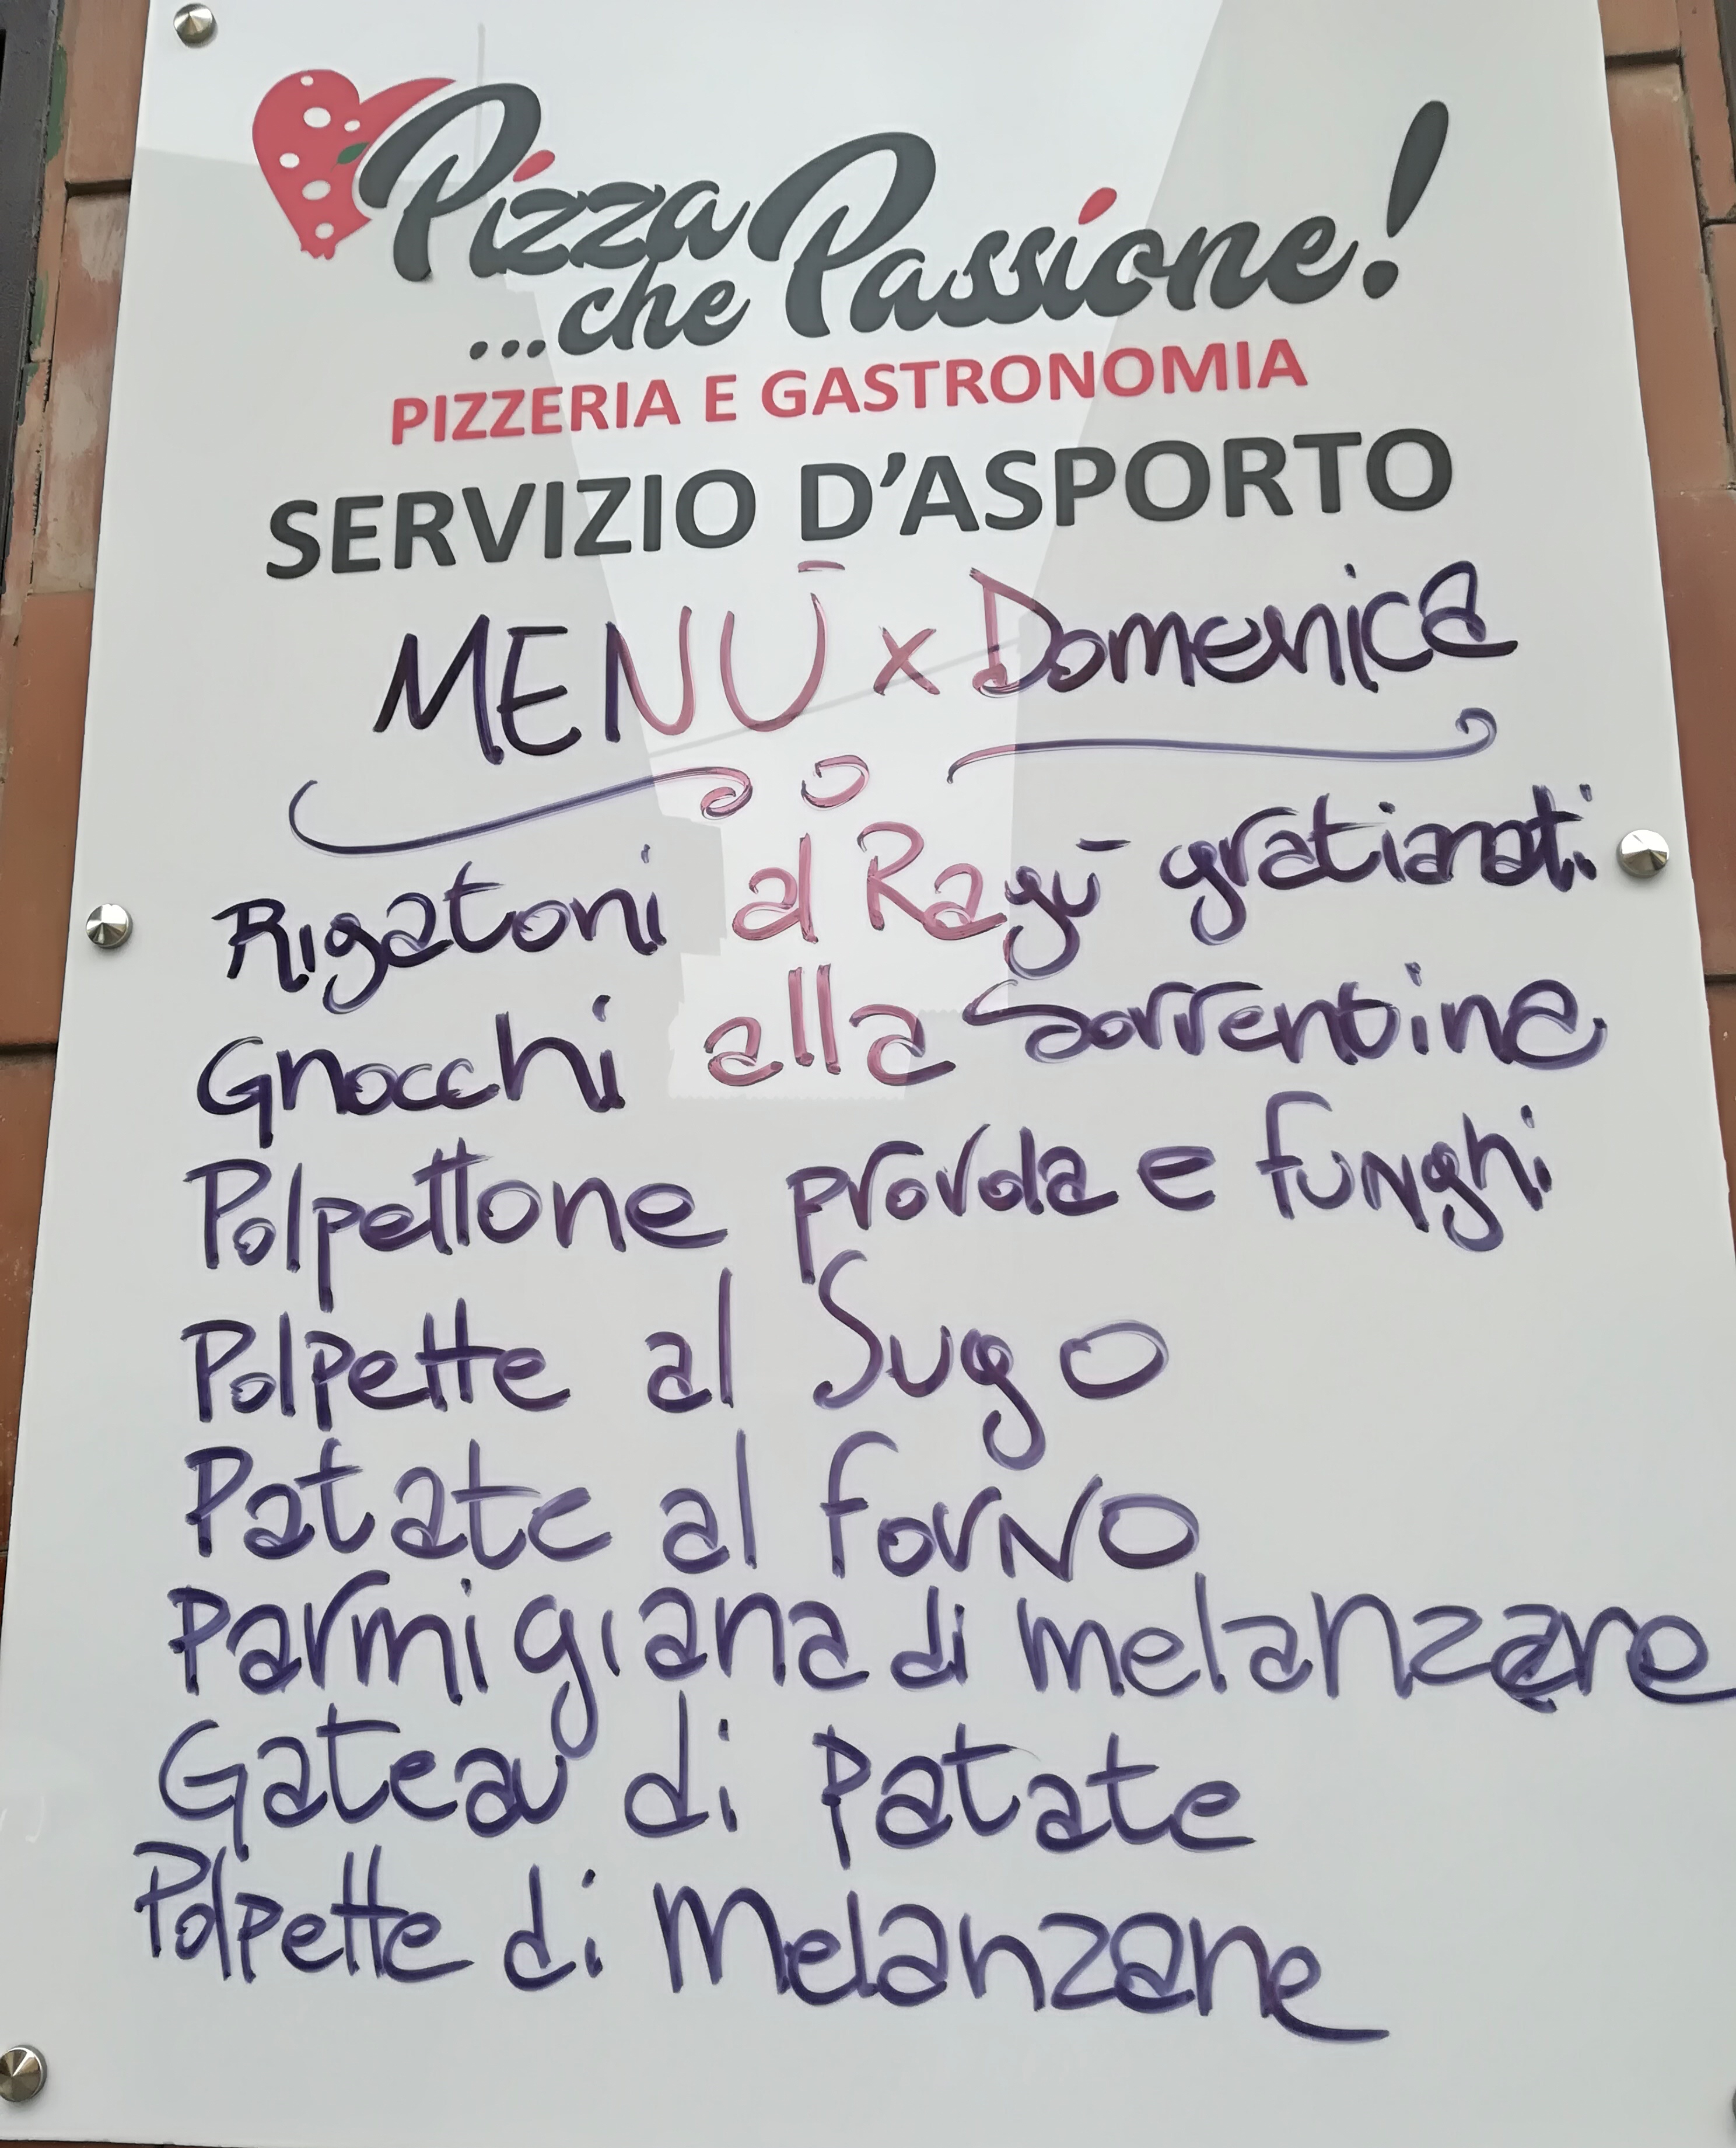 Pizza
...che Passione!
PIZZERIA E GASTRONOMIA
SERVIZIO D'ASPORTO
MENÙ x Domenica
Rigatoni al Ragù gratinati
Gnocchi alla Sorrentina
Polpettone provola e funghi
Polpette al Sugo
Patate al forno
Parmigiana di melanzane
Gateau di Patate
Polpette di Melanzane